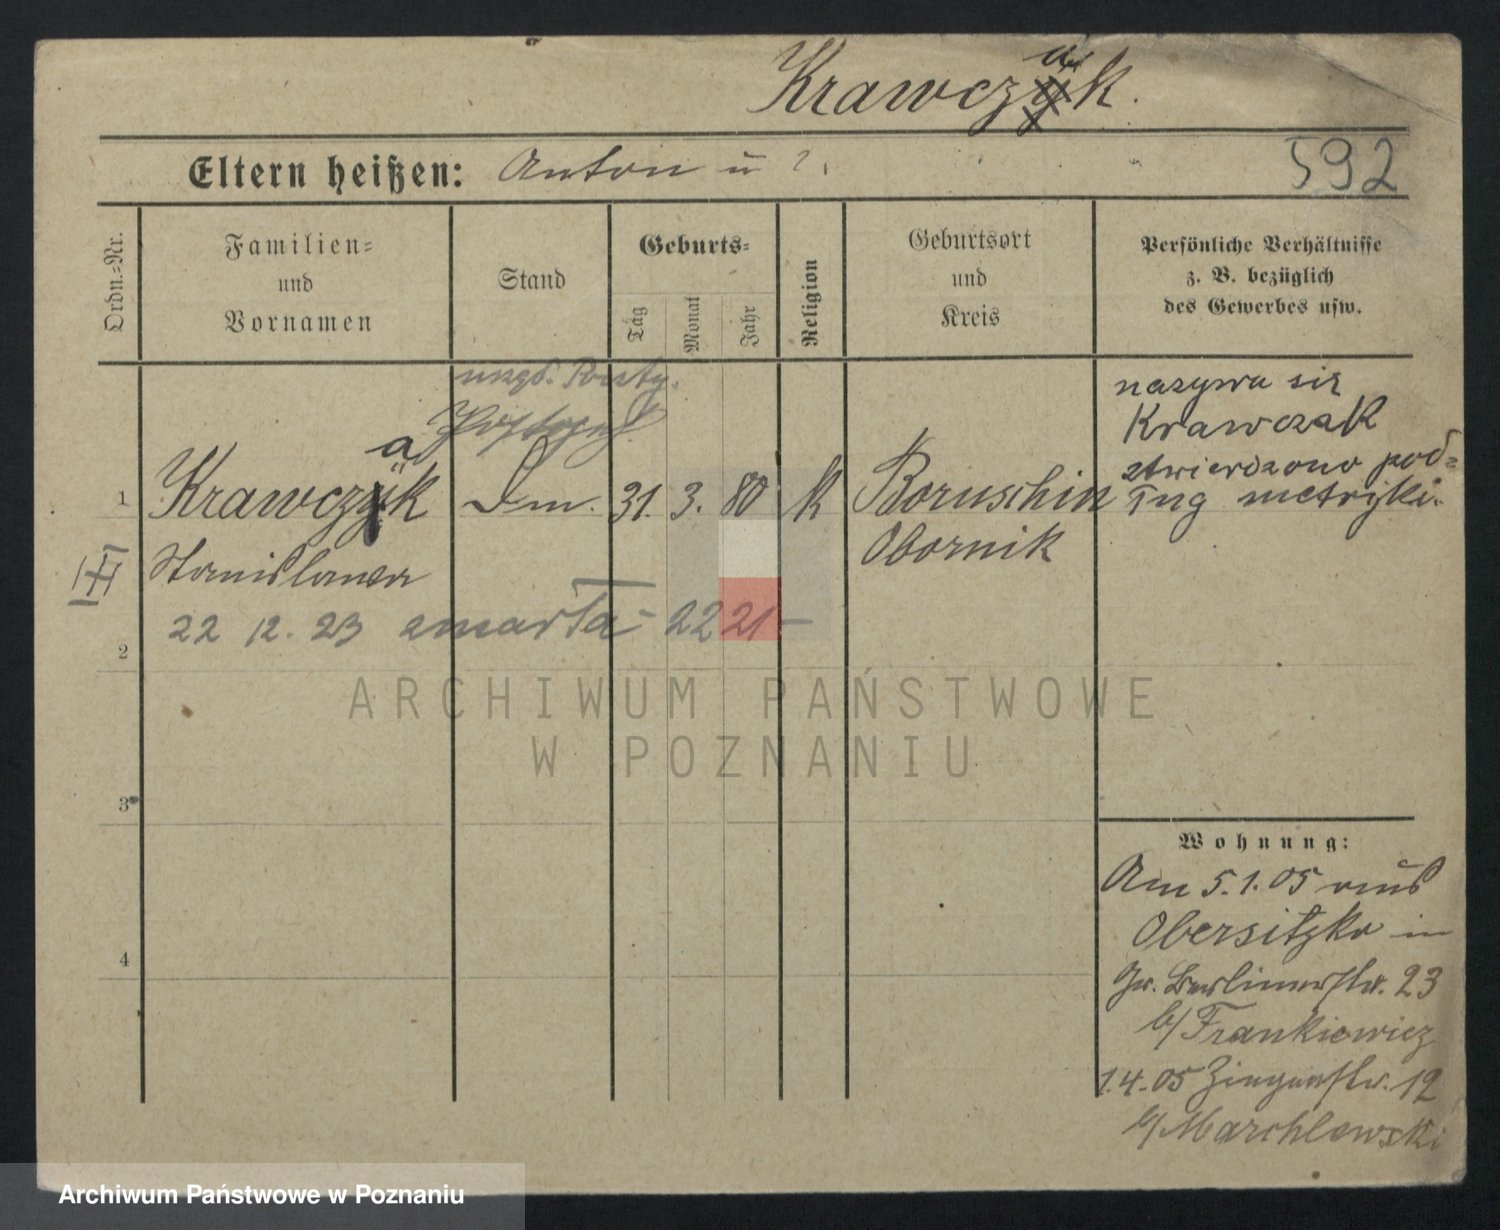 Krawczak.
Eltern heißen: Anton u ?.
592
Ordn.-Nr.
Familien-
und
Vornamen
Stand
Geburts-
Tag
Monat
Jahr
Religion
Geburtsort
und
Kreis
Persönliche Verhältnisse
z. B. bezüglich
des Gewerbes usw.
1
a
Krawczyk
Dm.
31.
3.
80
k
Boruschin
Obornik
nazywa się
Krawczak
stwierdzono pod-
ług metryki.
III
Stanislawa
22 12. 23 zmarła - 22 21 -
2
3
4
Wohnung:
Am 5.1.05 aus
Obersitzko in
Gr. Berlinerstr. 23
b/ Frankiewicz
1.4.05 Ziegenstr. 12
b/ Marchlewski
ARCHIWUM PAŃSTWOWE
W POZNANIU
Archiwum Państwowe w Poznaniu